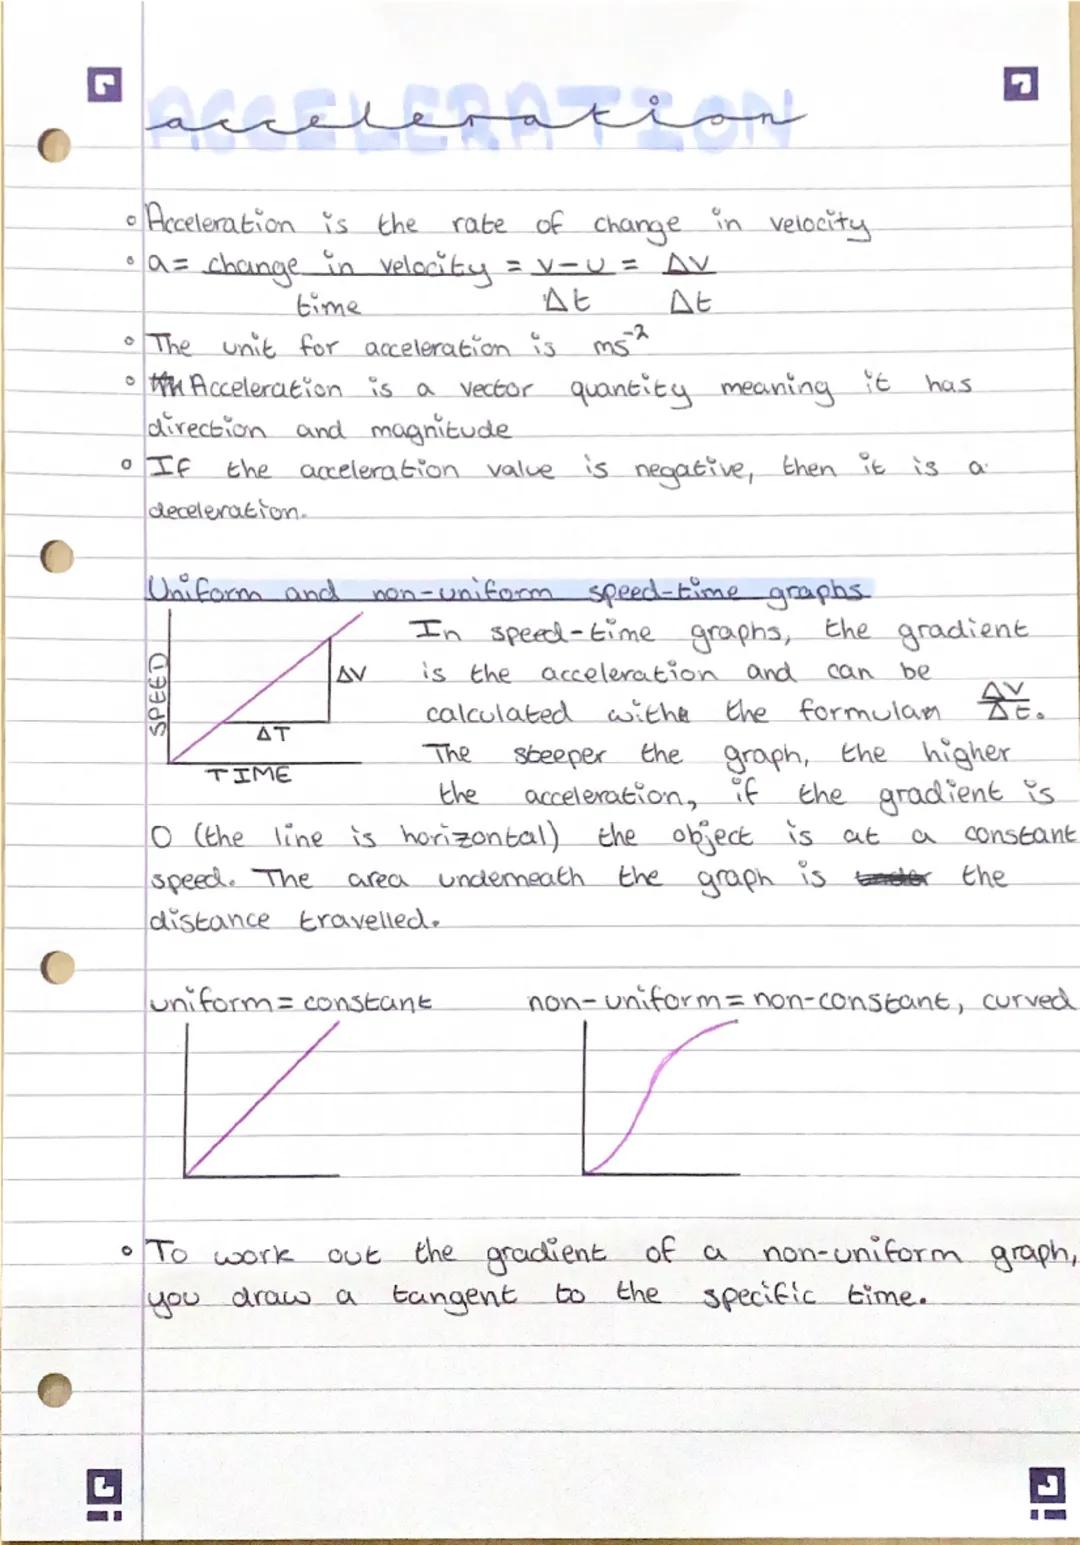 ACCELERATION
acceleration
Acceleration is the rate of change in velocity
a = change in velocity = v-u = ΔV
time Δt Δt
The unit for acceleration is ms⁻²
Acceleration is a vector quantity meaning it has
direction and magnitude
If the acceleration value is negative, then it is a
deceleration.
Uniform and non-uniform speed-time graphs
SPEED
ΔV
ΔT
TIME
In speed-time graphs, the gradient
is the acceleration and can be
calculated withe the formulam ΔV/Δt.
The steeper the graph, the higher
the acceleration, if the gradient is
0 (the line is horizontal) the object is at a constant
speed. The area underneath the graph is under the
distance travelled.
uniform = constant
non-uniform = non-constant, curved
To work out the gradient of a non-uniform graph,
you draw a tangent to the specific time.